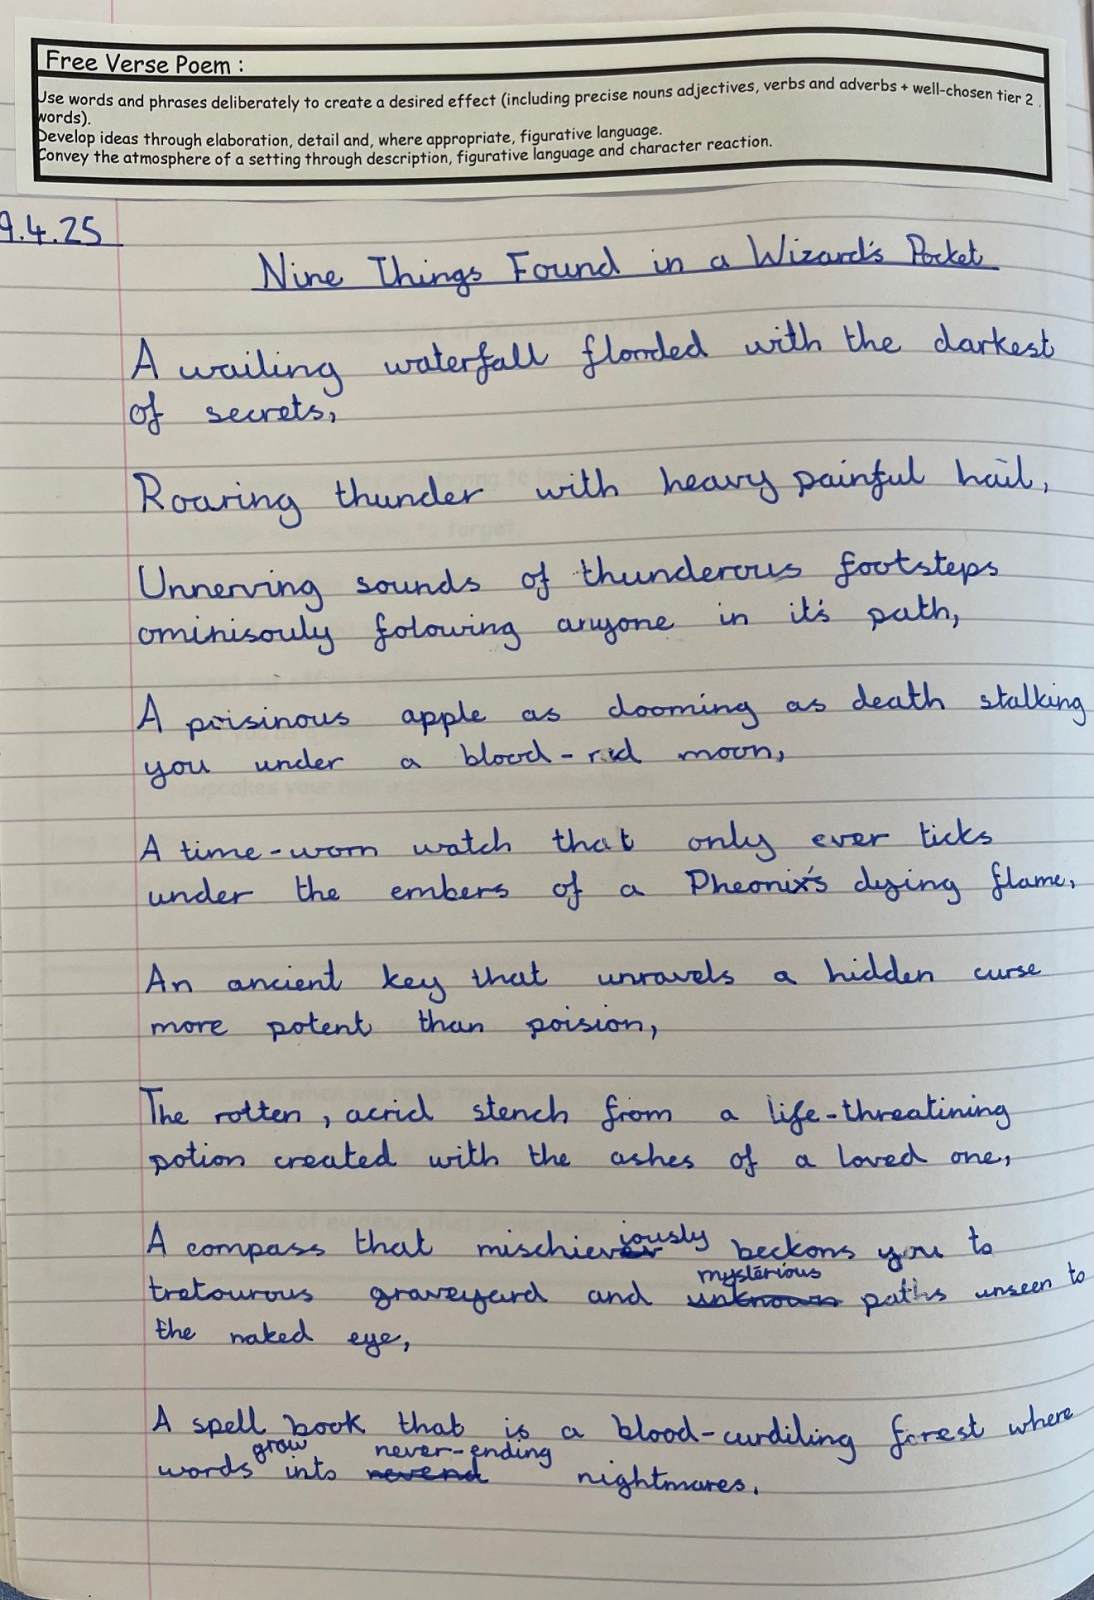 Free Verse Poem :
Use words and phrases deliberately to create a desired effect (including precise nouns adjectives, verbs and adverbs + well-chosen tier 2
words).
Develop ideas through elaboration, detail and, where appropriate, figurative language.
Convey the atmosphere of a setting through description, figurative language and character reaction.
9.4.25
Nine Things Found in a Wizard's Pocket
A wailing waterfall flooded with the darkest
of secrets,
Roaring thunder with heavy painful hail,
Unnerving sounds of thunderous footsteps
ominisouly folowing anyone in it's path,
A poisinous apple as dooming as death stalking
you under a blood-red moon,
A time-worn watch that only ever ticks
under the embers of a Pheonix's dying flame,
An ancient key that unravels a hidden curse
more potent than poision,
The rotten, acrid stench from a life-threatining
potion created with the ashes of a loved one,
A compass that mischieviously beckons you to
tretourous graveyard and mysterious paths unseen to
the naked eye,
A spell book that is a blood-curdiling forest where
words grow into never-ending nightmares.